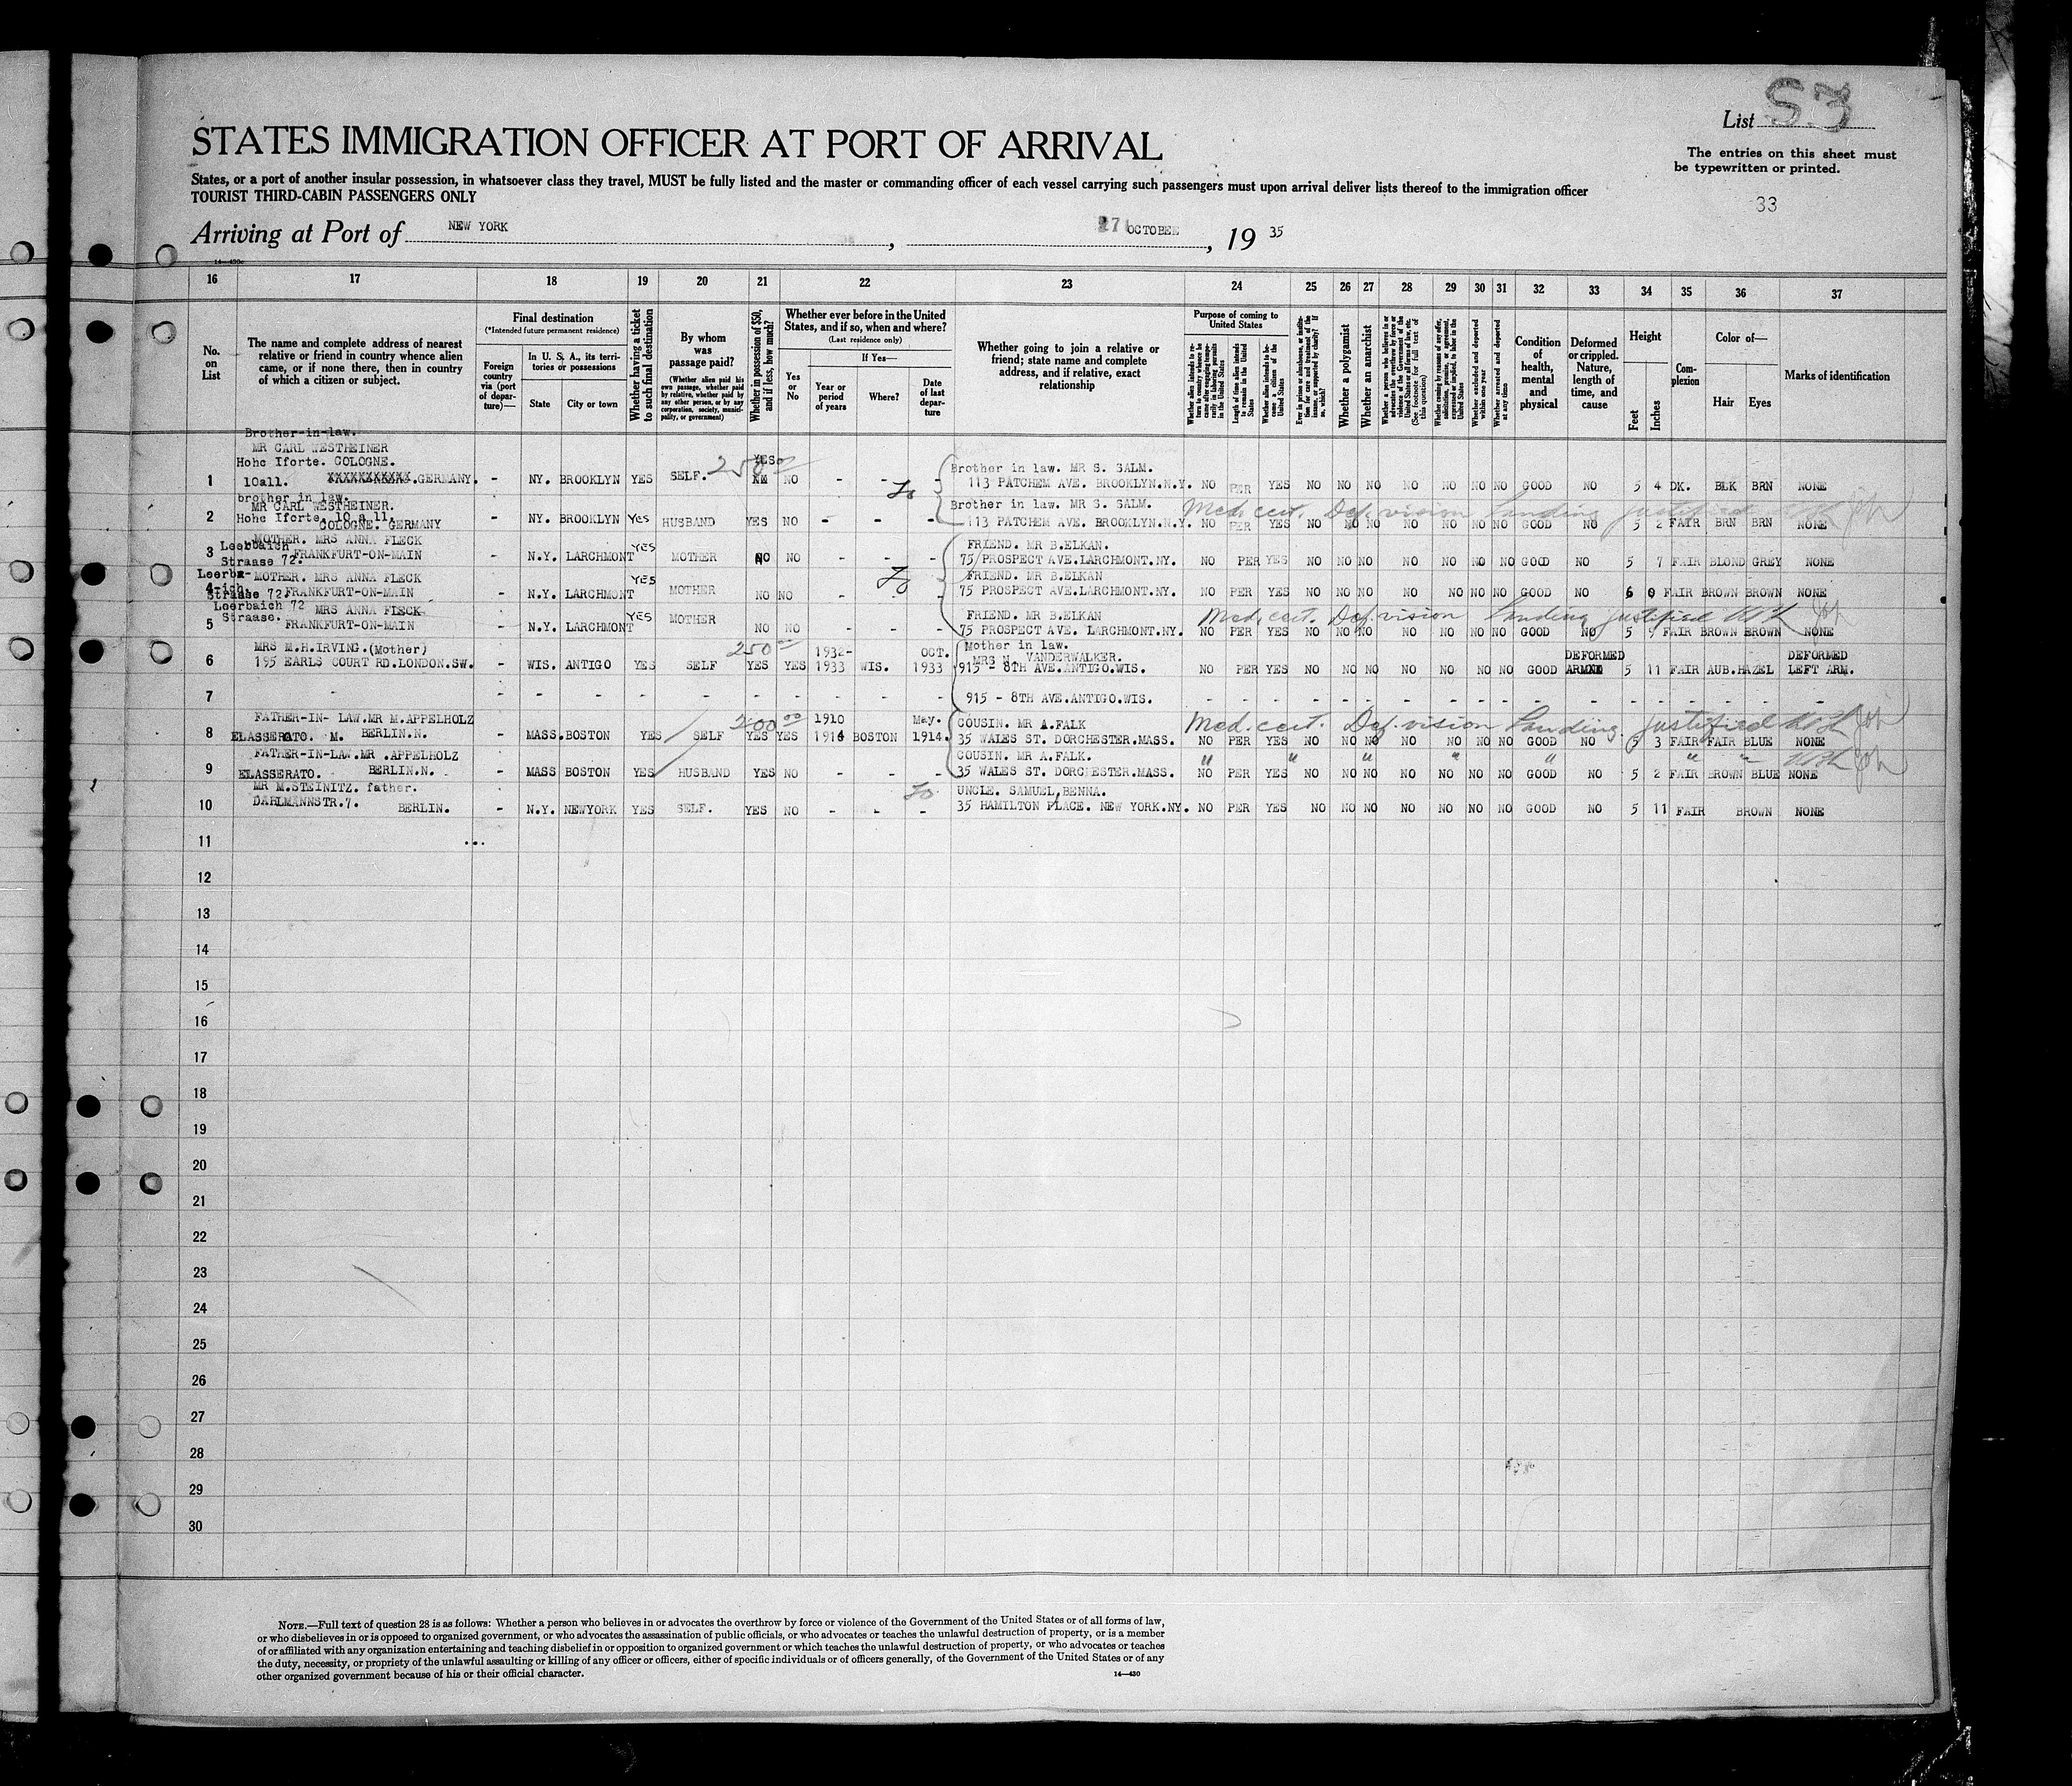 List S3
STATES IMMIGRATION OFFICER AT PORT OF ARRIVAL
The entries on this sheet must
be typewritten or printed.
States, or a port of another insular possession, in whatsoever class they travel, MUST be fully listed and the master or commanding officer of each vessel carrying such passengers must upon arrival deliver lists thereof to the immigration officer
TOURIST THIRD-CABIN PASSENGERS ONLY
33
Arriving at Port of NEW YORK, OCTOBER, 19 35
16 17 18 19 20 21 22 23 24 25 26 27 28 29 30 31 32 33 34 35 36 37
No. on List
The name and complete address of nearest relative or friend in country whence alien came, or if none there, then in country of which a citizen or subject.
Final destination
(*Intended future permanent residence)
Foreign country via (port of departure)—
In U. S. A., its territories or possessions
State
City or town
Whether having a ticket to such final destination
By whom was passage paid?
(Whether alien paid his own passage, whether paid by relative, whether paid by any other person, or by any corporation, society, municipality, or government)
Whether in possession of $50, and if less, how much?
Whether ever before in the United States, and if so, when and where?
(Last residence only)
Yes or No
If Yes—
Year or period of years
Where?
Date of last departure
Whether going to join a relative or friend; state name and complete address, and if relative, exact relationship
Purpose of coming to United States
Length of time alien intends to remain in the United States
Whether a polygamist
Whether an anarchist
Whether excluded and deported within one year
Whether arrested and deported at any time
Condition of health, mental and physical
Deformed or crippled. Nature, length of time, and cause
Height
Feet
Inches
Complexion
Color of—
Hair
Eyes
Marks of identification
Brother-in-law.
MR CARL WESTHEINER
Hohe Iforte. COLOGNE.
1 10a11. XXXXXXXXXXX.GERMANY. - NY. BROOKLYN YES SELF. 250 YES NO - - - Brother in law. MR S. SALM. 113 PATCHEM AVE. BROOKLYN.N.Y. NO PER YES NO NO NO NO NO NO NO GOOD NO 5 4 DK. BLK BRN NONE
brother in law.
MR CARL WESTHEINER.
2 Hohe Iforte. 10 a 11. COLOGNE. GERMANY - NY. BROOKLYN Yes HUSBAND YES NO - - - Brother in law. MR S. SALM. 113 PATCHEM AVE. BROOKLYN.N.Y. NO PER YES NO NO NO NO NO NO NO GOOD NO 5 2 FAIR BRN BRN NONE
Med. cert. Def. vision landing justified
3 MOTHER. MRS ANNA FLECK Leerbaich Straase 72. FRANKFURT-ON-MAIN - N.Y. LARCHMONT YES MOTHER NO NO - - - FRIEND. MR B.ELKAN. 75 PROSPECT AVE.LARCHMONT.NY. NO PER YES NO NO NO NO NO NO NO GOOD NO 5 7 FAIR BLOND GREY NONE
4 Leerba-ich. Straase 72. MOTHER. MRS ANNA FLECK FRANKFURT-ON-MAIN - N.Y. LARCHMONT YES MOTHER NO NO - - - FRIEND. MR B.ELKAN 75 PROSPECT AVE.LARCHMONT.NY. NO PER YES NO NO NO NO NO NO NO GOOD NO 6 0 FAIR BROWN BROWN NONE
5 Leerbaich 72 Straase. MRS ANNA FLECK FRANKFURT-ON-MAIN - N.Y. LARCHMONT YES MOTHER NO NO - - - FRIEND. MR B.ELKAN 75 PROSPECT AVE. LARCHMONT.NY. NO PER YES NO NO NO NO NO NO NO GOOD NO 5 9 FAIR BROWN BROWN NONE
Med. cert. Def. vision landing justified
6 MRS M.H.IRVING.(Mother) 195 EARLS COURT RD.LONDON.SW. - WIS. ANTIGO YES SELF 250 YES YES 1932-1933 WIS. OCT. 1933 Mother in law. MRS N. VANDERWALKER. 915 - 8TH AVE.ANTIGO.WIS. NO PER YES NO NO NO NO NO NO NO GOOD DEFORMED ARM 5 11 FAIR AUB. HAZEL DEFORMED LEFT ARM.
7 - - - - - - - - - - 915 - 8TH AVE.ANTIGO.WIS. - - - - - - - - - - - - - - - - - -
8 FATHER-IN- LAW.MR M.APPELHOLZ ELASSERATO. M. BERLIN.N. - MASS. BOSTON YES SELF 200 00 YES YES 1910 1914 BOSTON May. 1914. COUSIN. MR A.FALK 35 WALES ST. DORCHESTER.MASS. NO PER YES NO NO NO NO NO NO NO GOOD NO 5 3 FAIR FAIR BLUE NONE
Med. cert. Def. vision landing justified
9 FATHER-IN-LAW.MR .APPELHOLZ ELASSERATO. BERLIN.N. - MASS BOSTON YES HUSBAND YES NO - - - COUSIN. MR A.FALK. 35 WALES ST. DORCHESTER.MASS. NO PER YES NO NO NO NO NO NO NO GOOD NO 5 2 FAIR BROWN BLUE NONE
10 MR M.STEINITZ. father. DAHLMANNSTR.7. BERLIN. - N.Y. NEWYORK YES SELF. YES NO - - - UNCLE. SAMUEL,BENNA. 35 HAMILTON PLACE. NEW YORK.NY. NO PER YES NO NO NO NO NO NO NO GOOD NO 5 11 FAIR BROWN NONE
11
12
13
14
15
16
17
18
19
20
21
22
23
24
25
26
27
28
29
30
NOTE.—Full text of question 28 is as follows: Whether a person who believes in or advocates the overthrow by force or violence of the Government of the United States or of all forms of law,
or who disbelieves in or is opposed to organized government, or who advocates the assassination of public officials, or who advocates or teaches the unlawful destruction of property, or is a member
of or affiliated with any organization entertaining and teaching disbelief in or opposition to organized government or which teaches the unlawful destruction of property, or who advocates or teaches
the duty, necessity, or propriety of the unlawful assaulting or killing of any officer or officers, either of specific individuals or of officers generally, of the Government of the United States or of any
other organized government because of his or their official character.
14—430